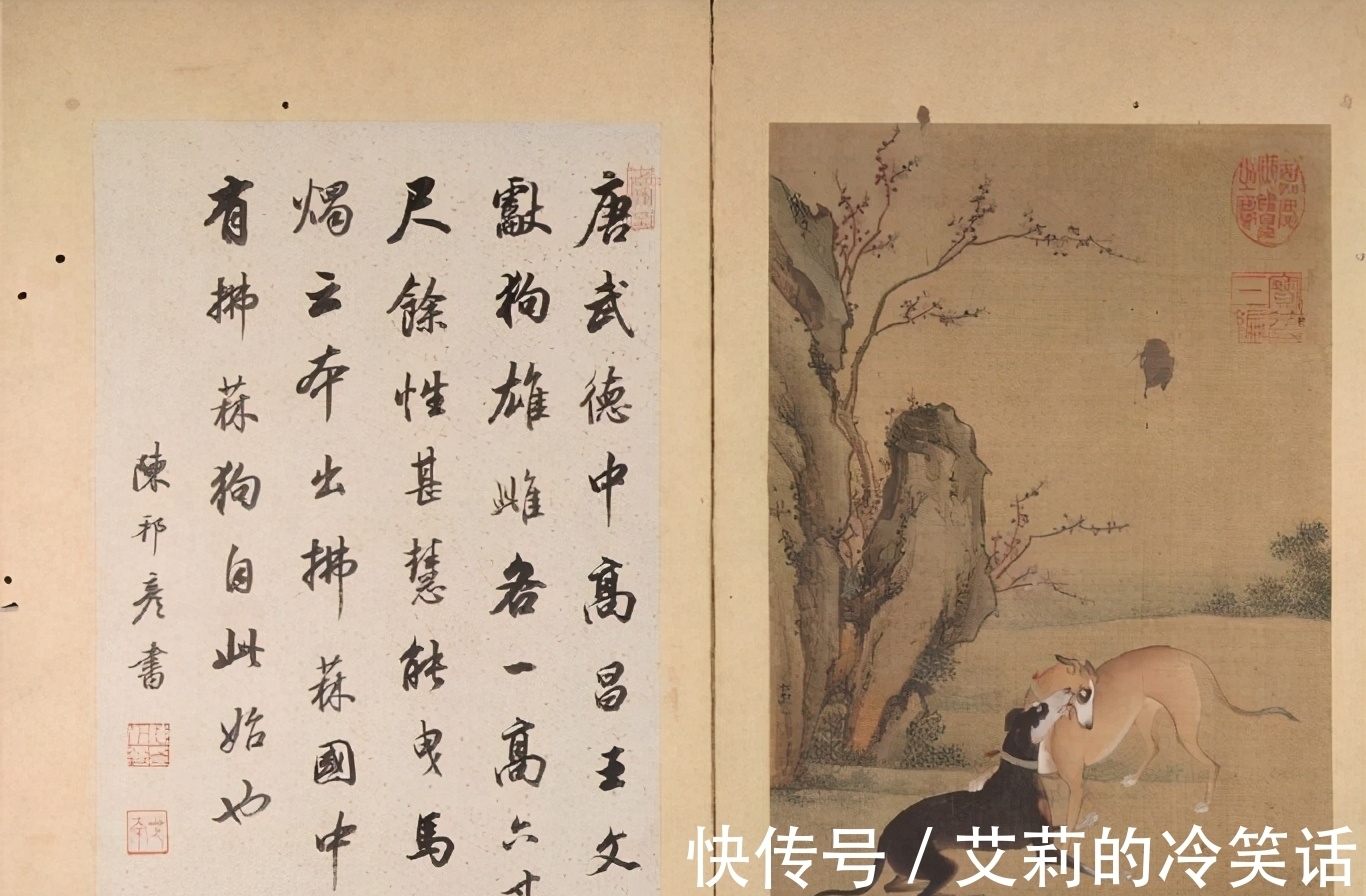 唐武德中髙昌王文
獻狗雄雌各一髙六
尺餘性甚慧能曳馬
燭云本出拂菻國中
有拂菻狗自此始也
陳邦彦書
快传号 / 艾莉的冷笑话